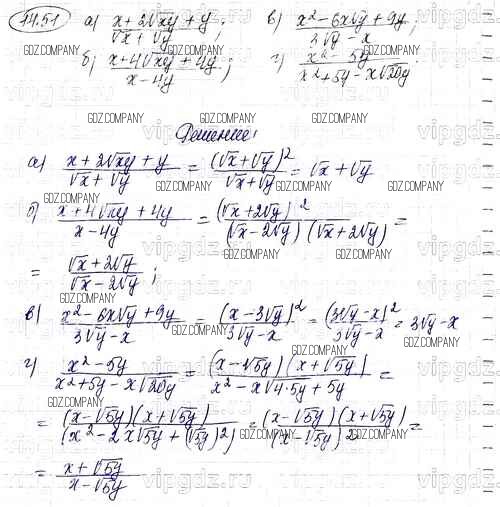 14.51) а) (x + 2√xy + y)/(√x + √y); в) (x² - 6x√y + 9y)/(3√y - x);
б) (x + 4√xy + 4y)/(x - 4y); г) (x² - 5y)/(x² + 5y - x√20y)
Решение:
а) (x + 2√xy + y)/(√x + √y) = (√x + √y)²/(√x + √y) = √x + √y
б) (x + 4√xy + 4y)/(x - 4y) = (√x + 2√y)²/((√x - 2√y)(√x + 2√y)) =
= (√x + 2√y)/(√x - 2√y);
в) (x² - 6x√y + 9y)/(3√y - x) = (x - 3√y)²/(3√y - x) = (3√y - x)²/(3√y - x) = 3√y - x
г) (x² - 5y)/(x² + 5y - x√20y) = (x - √5y)(x + √5y)/(x² - x√4·5y + 5y) =
= (x - √5y)(x + √5y)/(x² - 2x√5y + (√5y)²) = (x - √5y)(x + √5y)/(x - √5y)² =
= (x + √5y)/(x - √5y)
GDZ.COMPANY
vipgdz.ru